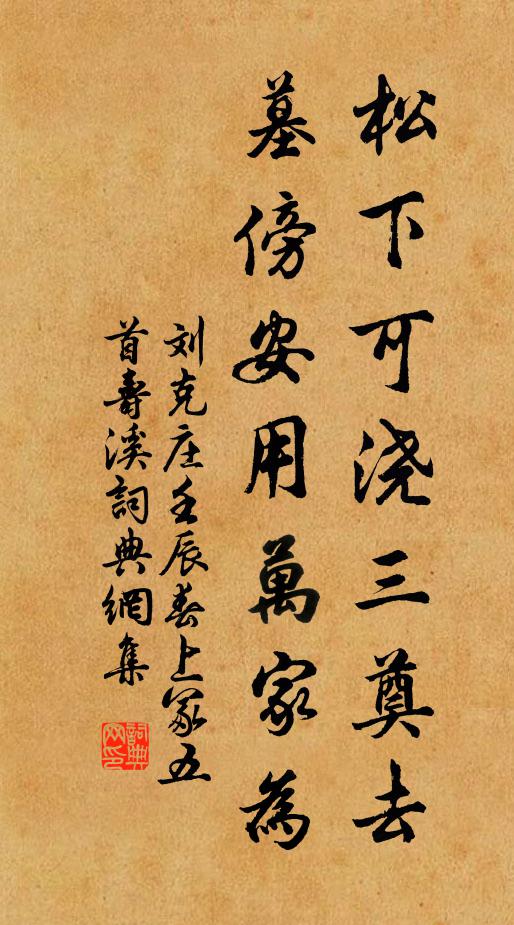 松下可浇三奠去
墓傍安用萬家為
刘克庄壬辰春上冢五
首壽溪詞典網集
詞典網印